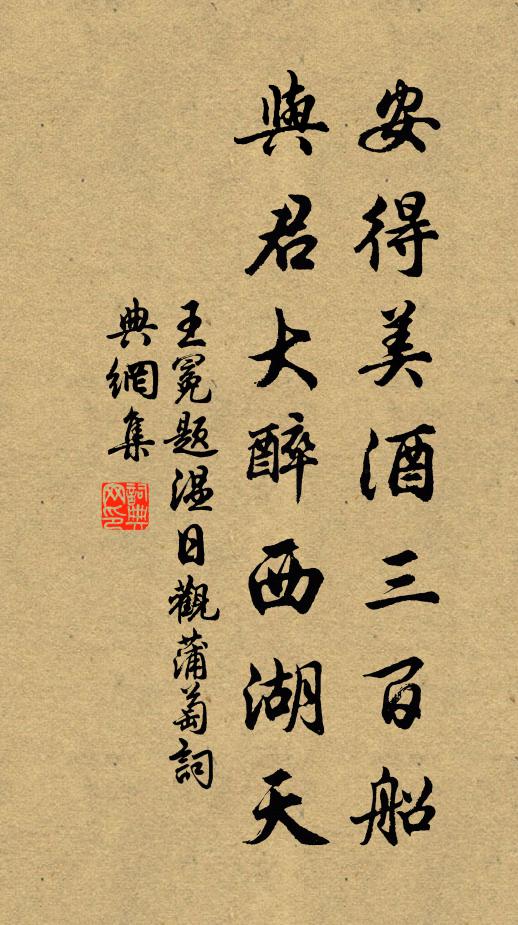 安得美酒三百船
與君大醉西湖天
王冕題溫日觀蒲萄詞
典網集
詞典
网印